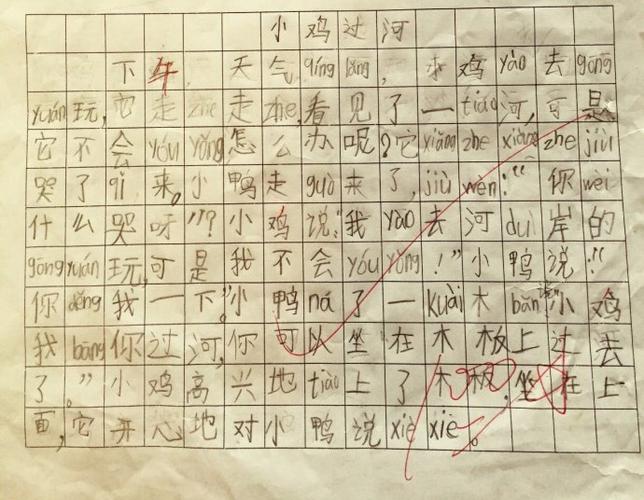 小鸡过河
下午,天气qíng lǎng,小鸡yào去gōng
yuán玩,它走zhe走zhe,看见了一tiáo河,可是
它不会yóu yǒng怎么办呢?它xiǎng zhe xiǎng zhe jiù
哭了qǐ来。小鸭走guò来了,jiù wèn:“你wèi
什么哭呀”?小鸡说:“我yào去河duì岸的
gōng yuán玩,可是我不会yóu yǒng!”小鸭说:“
你děng我一下。”小鸭ná了一kuài木bǎn“小鸡
我bāng你过河,你可以坐在木板上过去
了。”小鸡高兴地tiào上了木板,坐在上
面,它开心地对小鸭说xiè xiè。